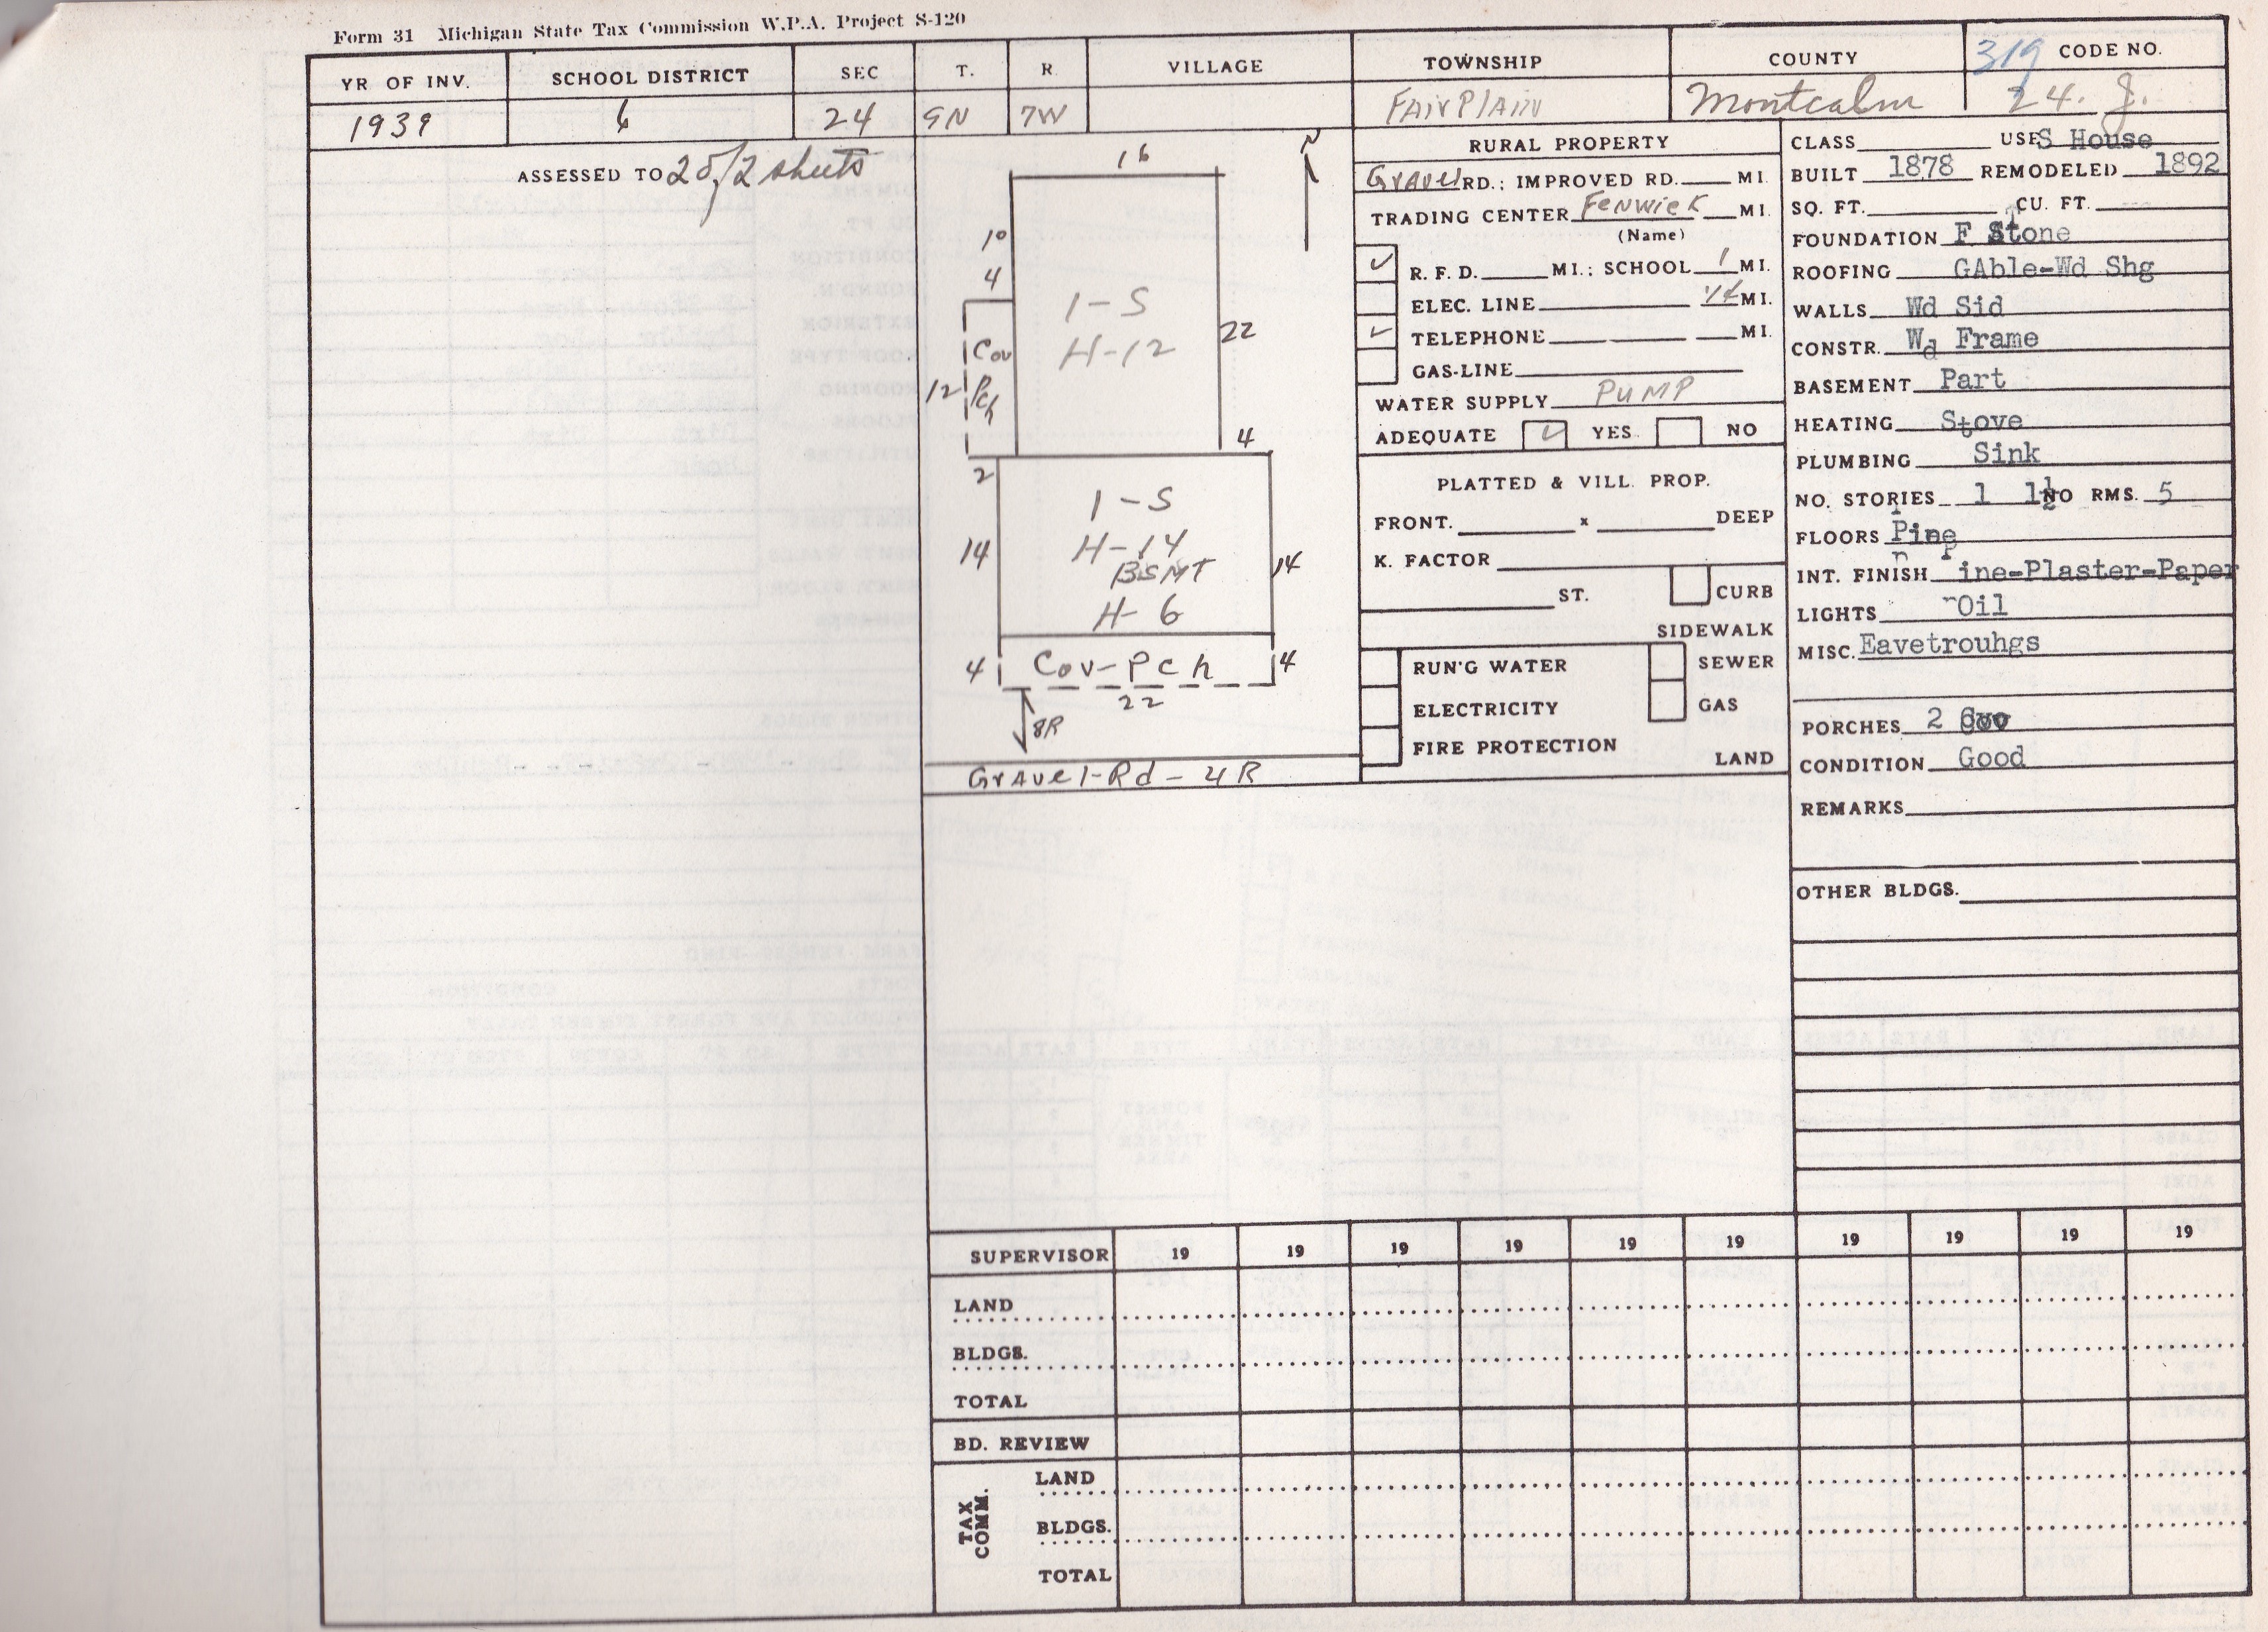 Form 31 Michigan State Tax Commission W.P.A. Project S-120
YR OF INV. SCHOOL DISTRICT SEC T. R VILLAGE TOWNSHIP COUNTY 319 CODE NO.
1939 6 24 9N 7W FAIRPLAIN Montcalm 24. J.
ASSESSED TO 2 of 2 sheets
N
16
10
4
1-S
H-12
22
Cov
Pch
12
4
2
1-S
H-14
BSMT
H-6
14
14
4 Cov-Pch 4
22
8R
Gravel-Rd-4R
RURAL PROPERTY
Gravel RD.; IMPROVED RD. MI.
TRADING CENTER Fenwick MI.
(Name)
✓ R. F. D. MI.; SCHOOL 1 MI.
ELEC. LINE 1/4 MI.
✓ TELEPHONE MI.
GAS-LINE
WATER SUPPLY PUMP
ADEQUATE ✓ YES NO
PLATTED & VILL. PROP.
FRONT. x DEEP
K. FACTOR
ST. CURB
SIDEWALK
RUN'G WATER SEWER
ELECTRICITY GAS
FIRE PROTECTION
LAND
CLASS USE S House
BUILT 1878 REMODELED 1892
SQ. FT. CU. FT.
FOUNDATION F Stone
ROOFING GAble-Wd Shg
WALLS Wd Sid
CONSTR. Wd Frame
BASEMENT Part
HEATING Stove
PLUMBING Sink
NO. STORIES 1 1½ NO RMS. 5
FLOORS Pine
INT. FINISH Pine-Plaster-Paper
LIGHTS Oil
MISC. Eavetrouhgs
PORCHES 2 Cov
CONDITION Good
REMARKS
OTHER BLDGS.
SUPERVISOR 19 19 19 19 19 19 19 19 19 19
LAND
BLDGS.
TOTAL
BD. REVIEW
TAX COMM.
LAND
BLDGS.
TOTAL